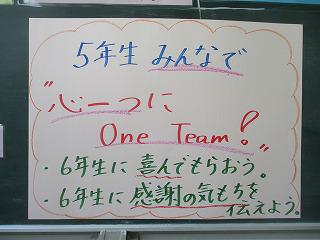 5年生 みんなで
"心一つに
One Team!"
・6年生に喜んでもらおう。
・6年生に感謝の気もちを
伝えよう。